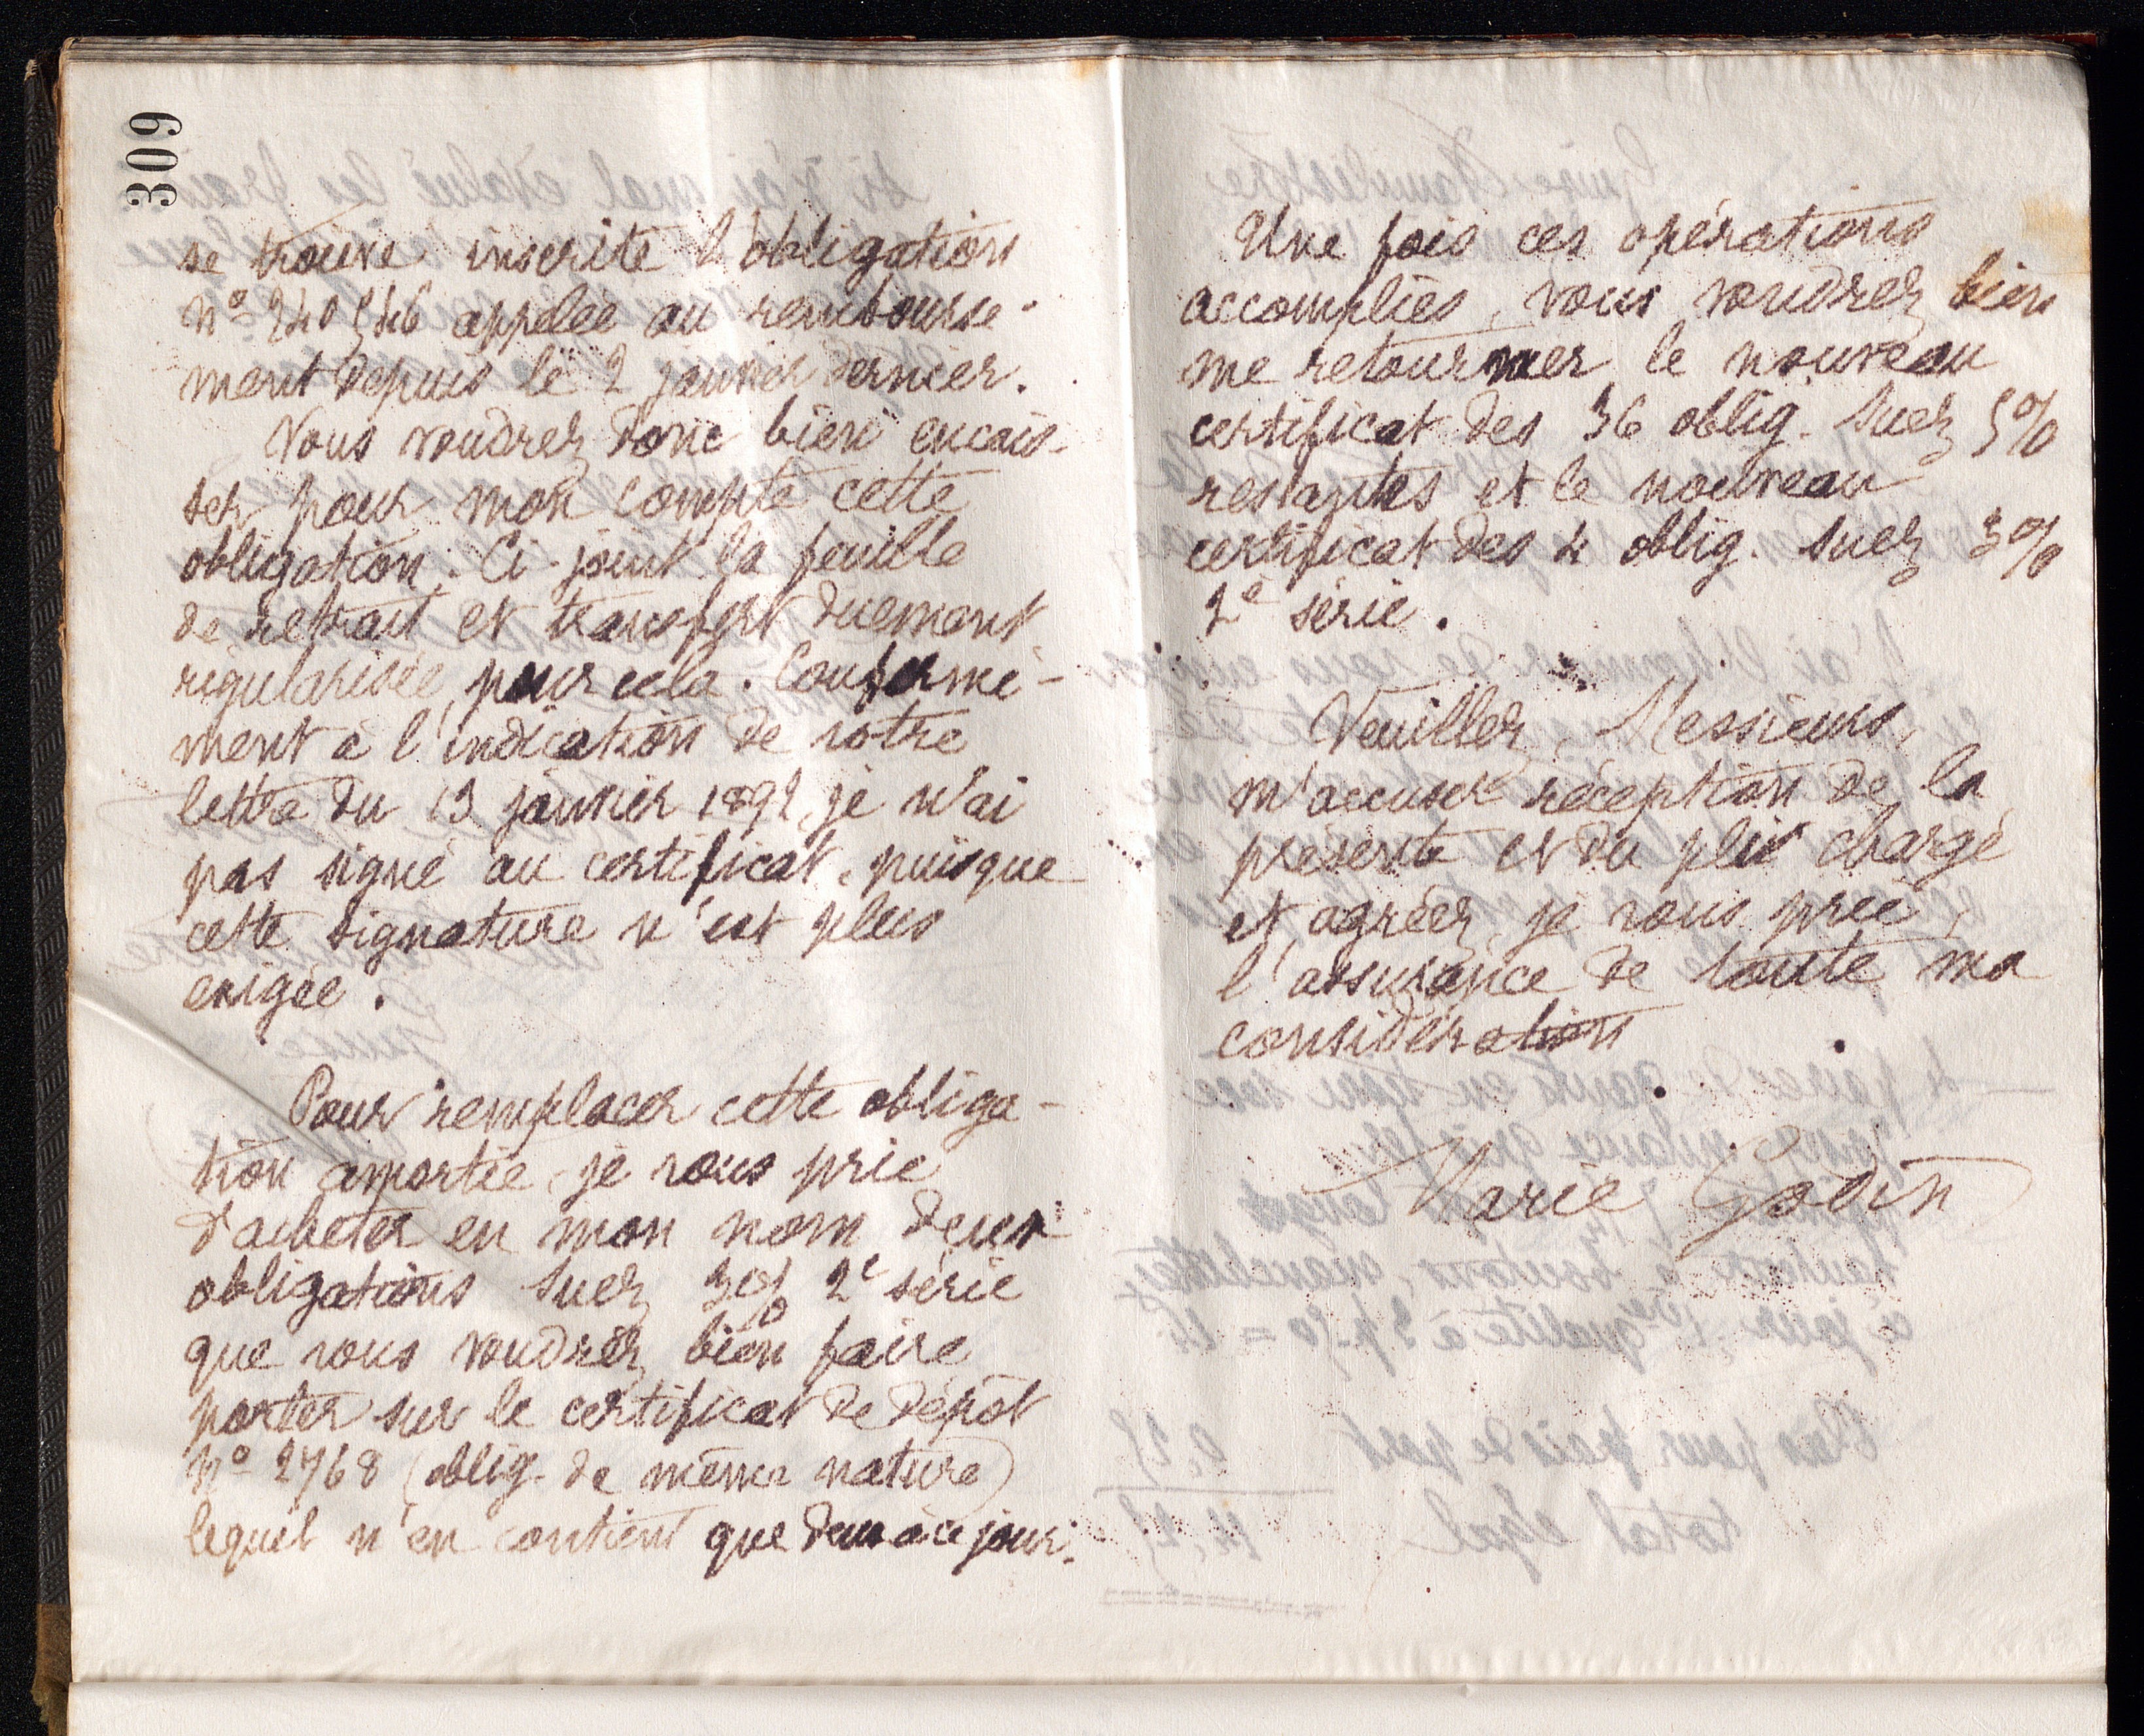 309
se trouve inscrite l'obligation
no 240546 appelée au rembourse-
ment depuis le 2 janvier dernier.
Vous voudrez donc bien encais-
ser pour mon compte cette
obligation. Ci-joint la feuille
de retrait et transfert duement
régularisée pour cela. Conformé-
ment à l'indication de votre
lettre du 13 janvier 1892, je n'ai
pas signé au certificat, puisque
cette signature n'est plus
exigée.
Pour remplacer cette obliga-
tion amortie, je vous prie
d'acheter en mon nom deux
obligations Suez 3% 2e série
que vous voudrez bien faire
porter sur le certificat de dépôt
No 2768 (oblig. de même nature)
lequel n'en contient que deux à ce jour.
Une fois ces opérations
accomplies, vous voudrez bien
me retourner le nouveau
certificat des 36 oblig. Suez 5%
restantes et le nouveau
certificat des 4 oblig. Suez 3%
2e série.
Veuillez, Messieurs,
m'accuser réception de la
présente et du pli chargé
et agréer, je vous prie,
l'assurance de toute ma
considération
Marie Godin